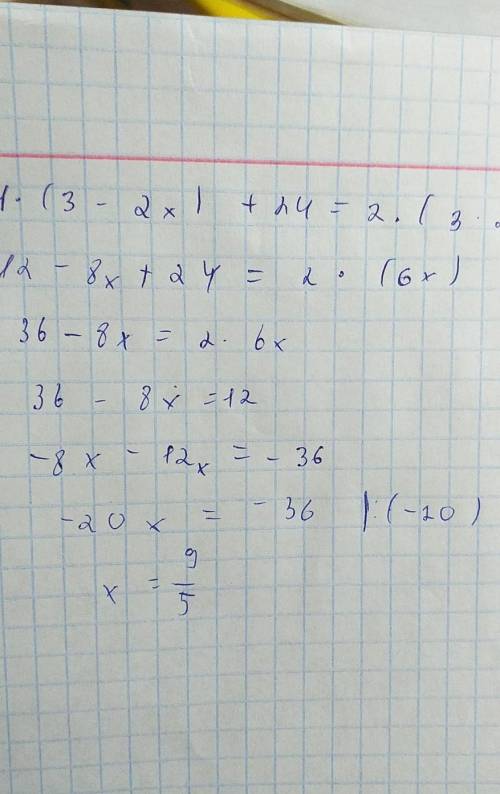 · (3 - 2x) + 24 = 2 · (3 ·
12 - 8x + 24 = 2 · (6x)
36 - 8x = 2 · 6x
36 - 8x = 12
-8x - 12x = -36
-20x = -36 |:(-20)
x = 9/5